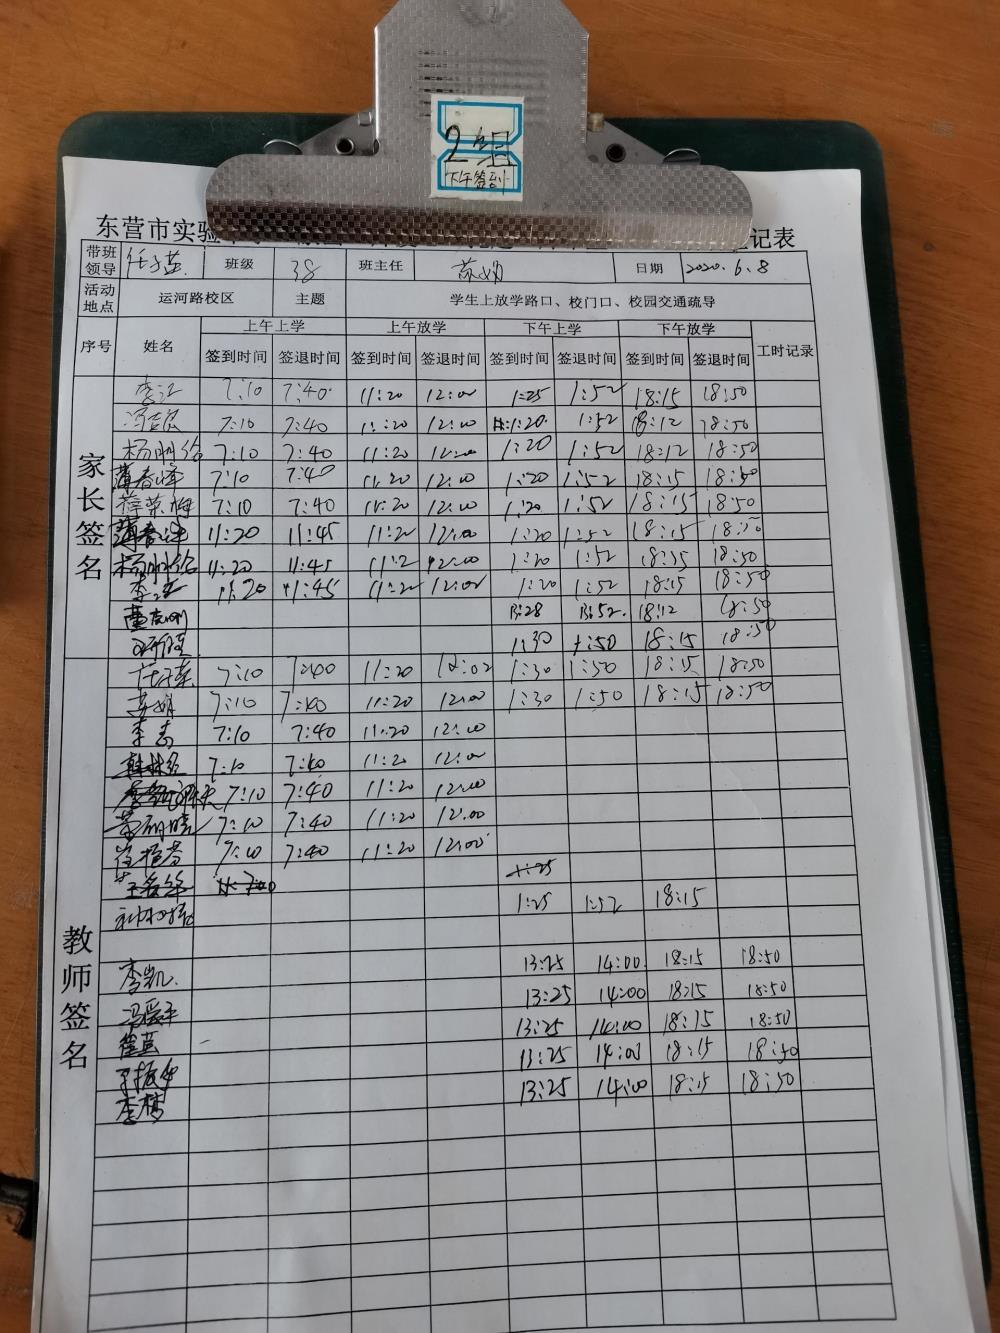 2组
下午签到
东营市实验
记表
带班领导 班级 38 班主任 苏娟 日期 2020.6.8
活动地点 运河路校区 主题 学生上放学路口、校门口、校园交通疏导
序号 姓名 上午上学 上午放学 下午上学 下午放学 工时记录
签到时间 签退时间 签到时间 签退时间 签到时间 签退时间 签到时间 签退时间
家长签名
李江 7:10 7:40 11:20 12:00 1:25 1:52 18:15 18:50
7:10 7:40 11:20 12:00 1:20 1:52 18:12 18:50
杨明给 7:10 7:40 11:20 12:00 1:20 1:52 18:12 18:50
薄春峰 7:10 7:40 11:20 12:00 1:20 1:52 18:15 18:50
薛荣梅 7:10 7:40 11:20 12:00 1:20 1:52 18:15 18:50
薄春峰 11:20 11:45 11:2 12:00 1:20 1:52 18:15 18:50
杨明给 11:20 11:45 11:2 12:00 1:20 1:52 18:35 18:50
李江 11:20 11:45 11:2 12:00 1:20 1:52 18:15 18:50
13:28 13:52 18:12 18:50
1:30 1:50 18:15 18:50
教师签名
7:10 7:40 11:20 12:02 1:30 1:50 18:15 18:50
苏娟 7:10 7:40 11:20 12:00 1:30 1:50 18:15 18:50
李 7:10 7:40 11:20 12:00
7:10 7:40 11:20 12:00
7:10 7:40 11:20 12:00
7:10 7:40 11:20 12:00
7:10 7:40 11:20 12:00
1:25
1:25 1:52 18:15
李凯 13:25 14:00 18:15 18:50
冯爱平 13:25 14:00 18:15 18:50
崔蓝 13:25 14:00 18:15 18:50
13:25 14:00 18:15 18:50
李梅 13:25 14:00 18:15 18:50